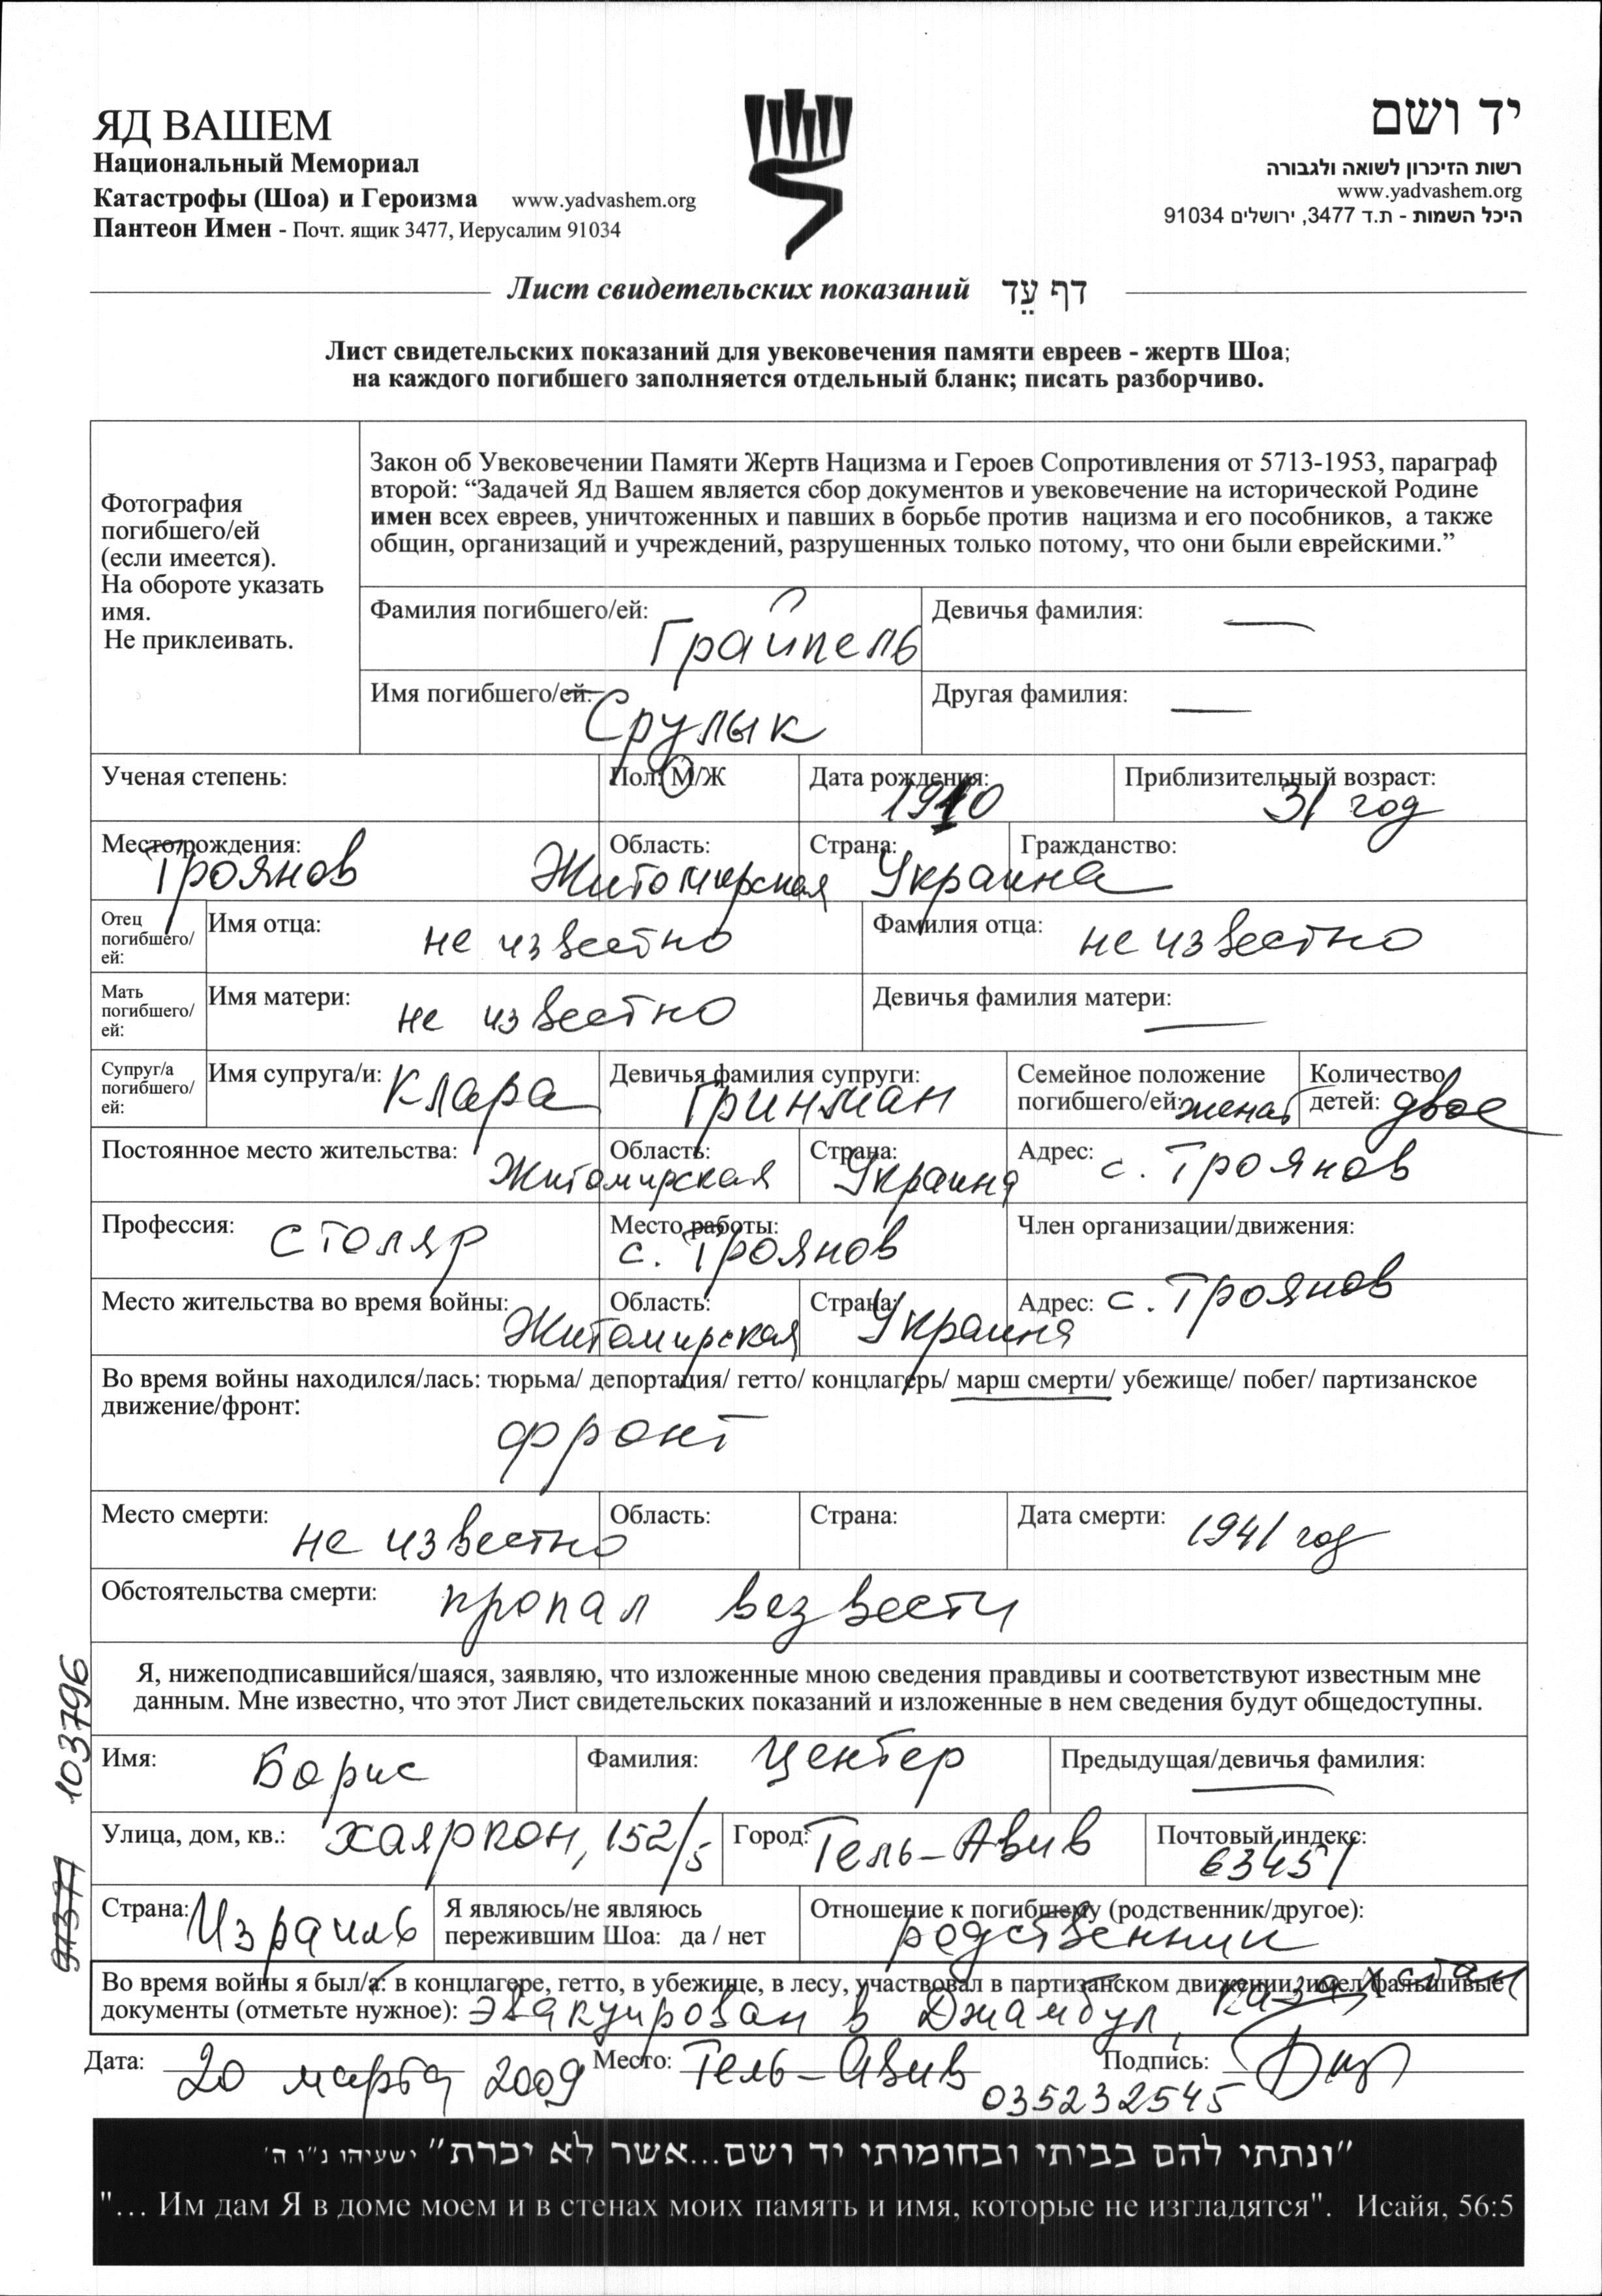 ЯД ВАШЕМ
Национальный Мемориал
Катастрофы (Шоа) и Героизма www.yadvashem.org
Пантеон Имен - Почт. ящик 3477, Иерусалим 91034
יד ושם
רשות הזיכרון לשואה ולגבורה
www.yadvashem.org
היכל השמות - ת.ד 3477, ירושלים 91034
Лист свидетельских показаний דף עֵד
Лист свидетельских показаний для увековечения памяти евреев - жертв Шоа;
на каждого погибшего заполняется отдельный бланк; писать разборчиво.
Фотография
погибшего/ей
(если имеется).
На обороте указать
имя.
Не приклеивать.
Закон об Увековечении Памяти Жертв Нацизма и Героев Сопротивления от 5713-1953, параграф
второй: “Задачей Яд Вашем является сбор документов и увековечение на исторической Родине
имен всех евреев, уничтоженных и павших в борьбе против нацизма и его пособников, а также
общин, организаций и учреждений, разрушенных только потому, что они были еврейскими.”
Фамилия погибшего/ей: Грайпель Девичья фамилия: —
Имя погибшего/ей: Срулык Другая фамилия: —
Ученая степень: Пол: М/Ж Дата рождения: 1910 Приблизительный возраст: 31 год
Место рождения: Троянов Область: Житомирская Страна: Украина Гражданство:
Отец
погибшего/
ей:
Имя отца: не известно Фамилия отца: не известно
Мать
погибшего/
ей:
Имя матери: не известно Девичья фамилия матери: —
Супруг/а
погибшего/
ей:
Имя супруга/и: Клара Девичья фамилия супруги: Гринман
Семейное положение
погибшего/ей: женат
Количество
детей: двое
Постоянное место жительства: Область: Житомирская Страна: Украина Адрес: с. Троянов
Профессия: столяр Место работы: с. Троянов Член организации/движения:
Место жительства во время войны: Область: Житомирская Страна: Украина Адрес: с. Троянов
Во время войны находился/лась: тюрьма/ депортация/ гетто/ концлагерь/ марш смерти/ убежище/ побег/ партизанское
движение/фронт:
фронт
Место смерти: не известно Область: Страна: Дата смерти: 1941 год
Обстоятельства смерти: пропал безвести
Я, нижеподписавшийся/шаяся, заявляю, что изложенные мною сведения правдивы и соответствуют известным мне
данным. Мне известно, что этот Лист свидетельских показаний и изложенные в нем сведения будут общедоступны.
Имя: Борис Фамилия: Центер Предыдущая/девичья фамилия: —
Улица, дом, кв.: Хаяркон, 152/5 Город: Тель-Авив Почтовый индекс: 63451
Страна: Израиль
Я являюсь/не являюсь
пережившим Шоа: да / нет
Отношение к погибшему (родственник/другое):
родственник
Во время войны я был/а: в концлагере, гетто, в убежище, в лесу, участвовал в партизанском движении, имел фальшивые
документы (отметьте нужное): эвакуирован в Джамбул, Казахстан
Дата: 20 марта 2009 Место: Тель-Авив Подпись:
035232545
103796
"ונתתי להם בביתי ובחומותי יד ושם...אשר לא יכרת" ישעיהו נ"ו ה'
"... Им дам Я в доме моем и в стенах моих память и имя, которые не изгладятся". Исайя, 56:5